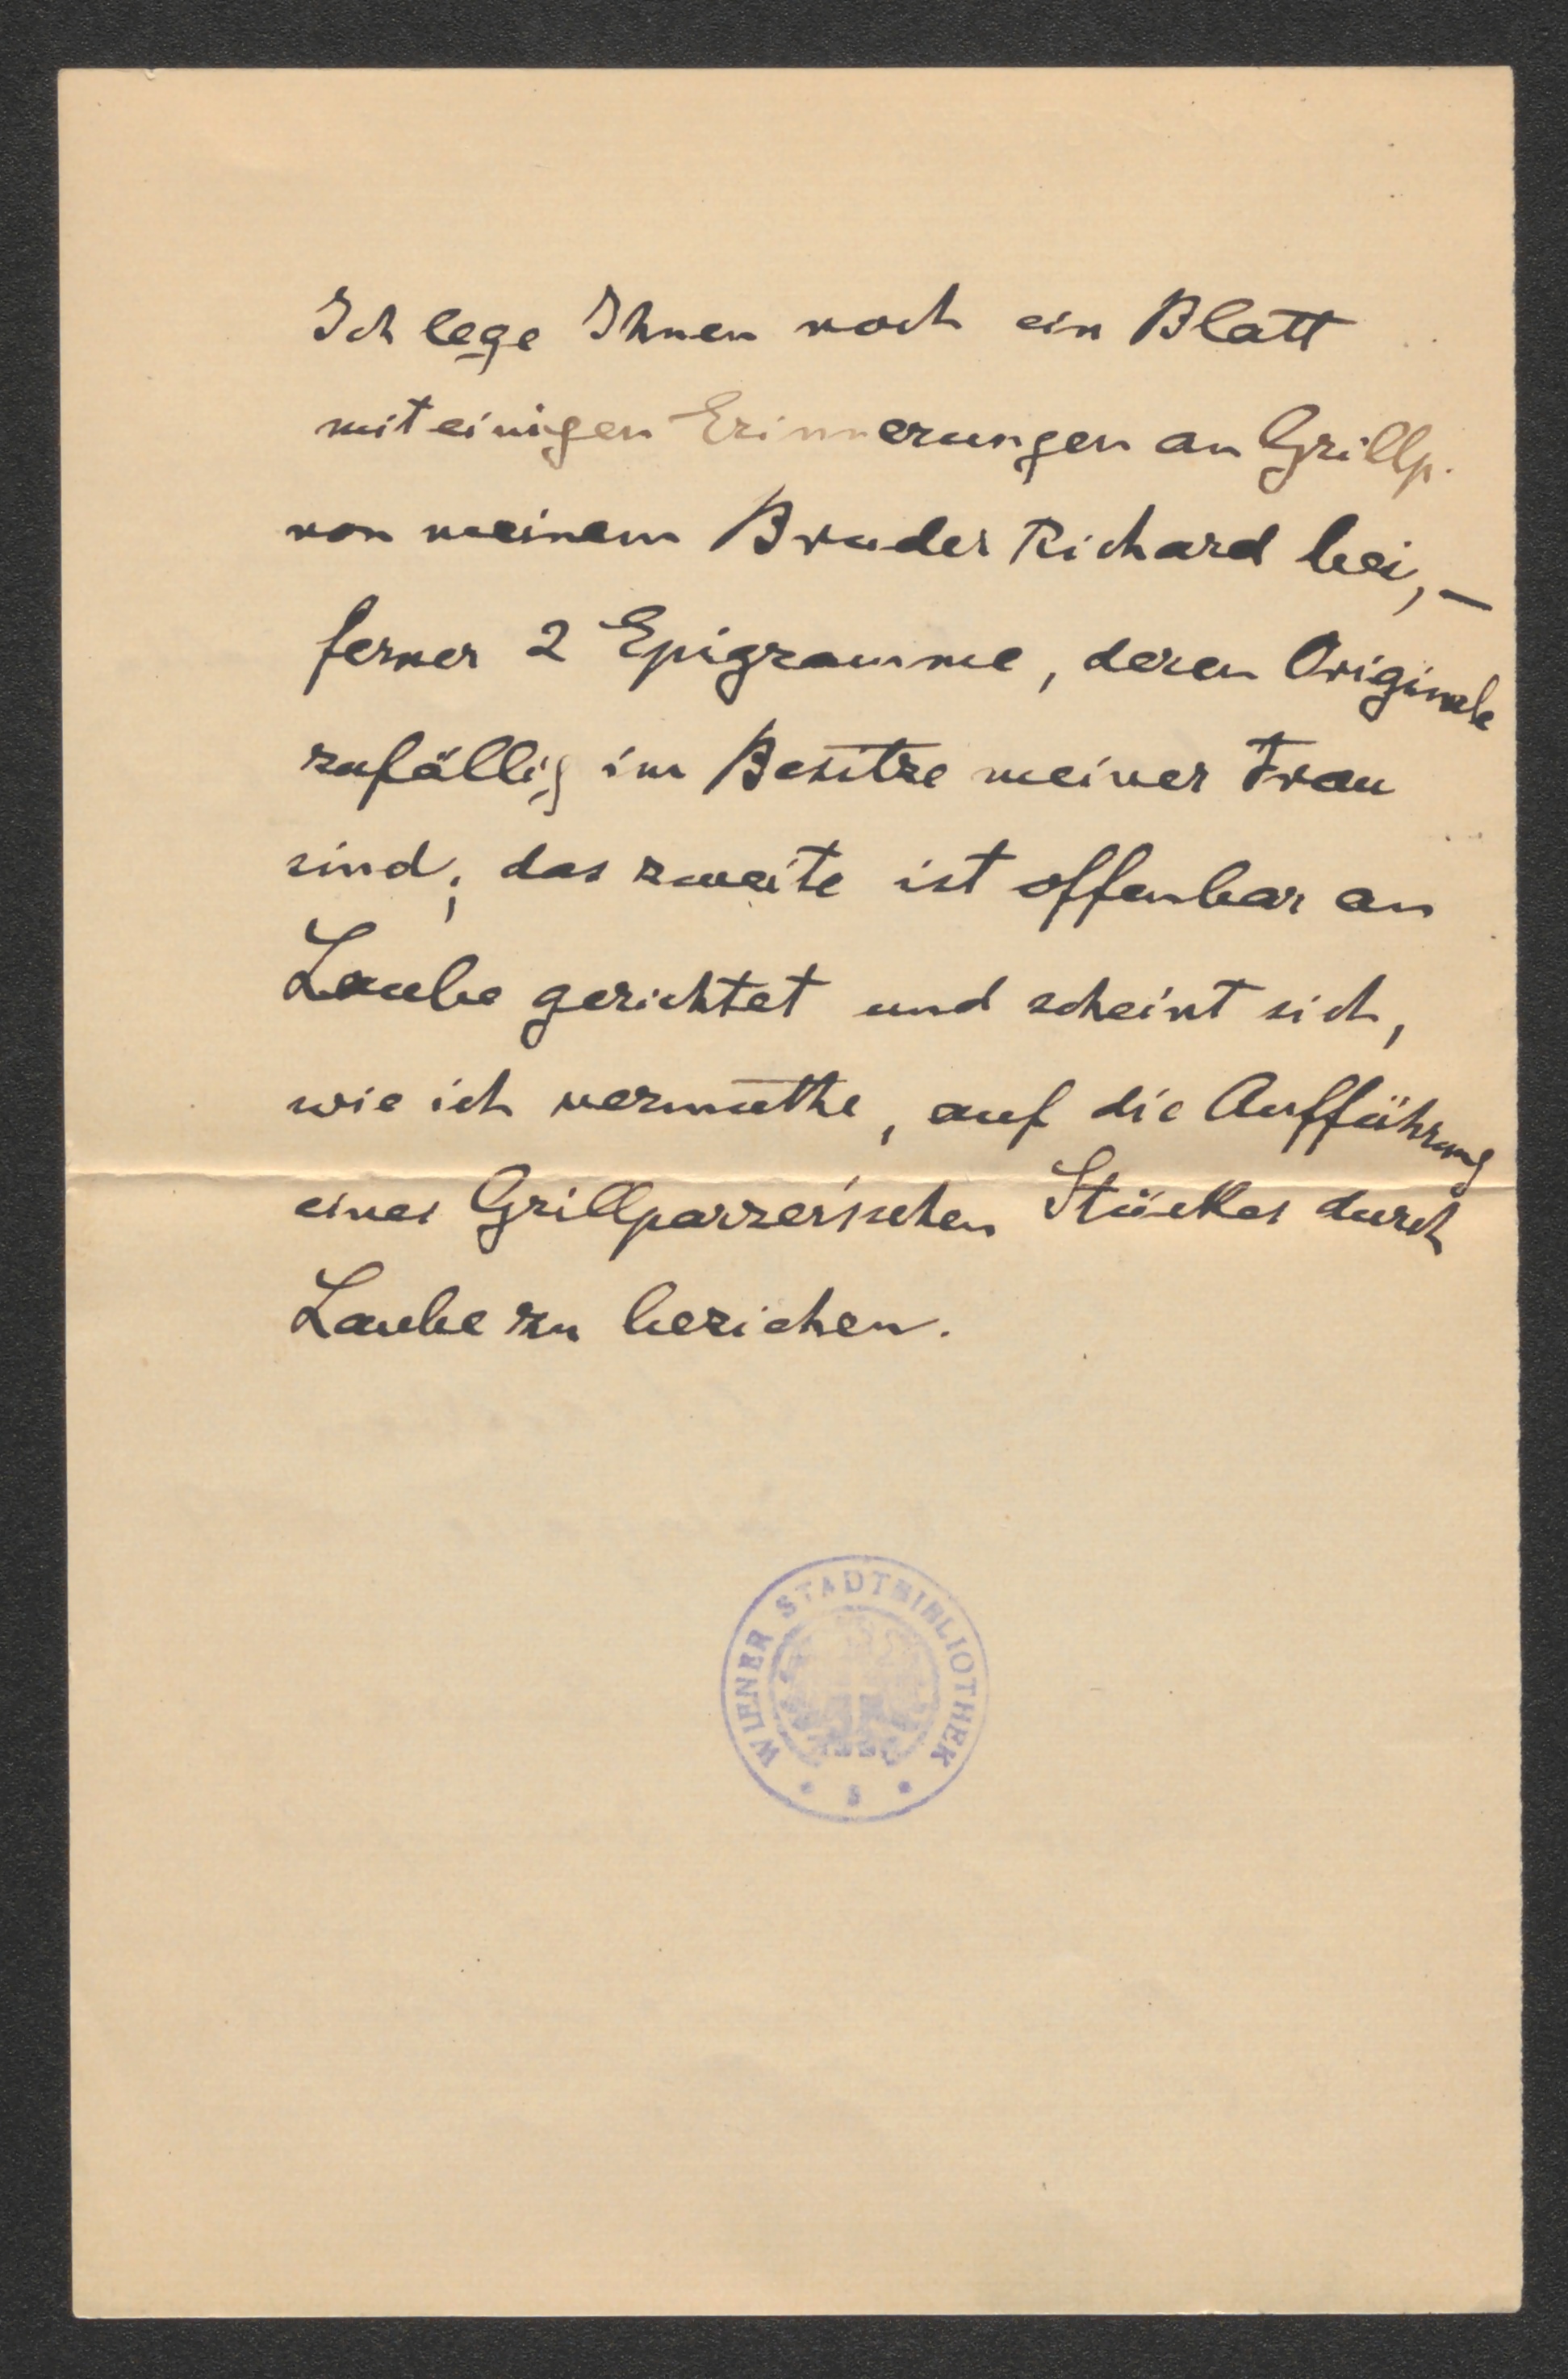 Ich lege Ihnen noch ein Blatt
mit einigen Erinnerungen an Grillp.
von meinem Bruder Richard bei, –
ferner 2 Epigramme, deren Originale
zufällig im Besitze meiner Frau
sind; das zweite ist offenbar an
Laube gerichtet und scheint sich,
wie ich vermuthe, auf die Aufführung
eines Grillparzer'schen Stückes durch
Laube zu beziehen.
WIENER STADTBIBLIOTHEK
* S *